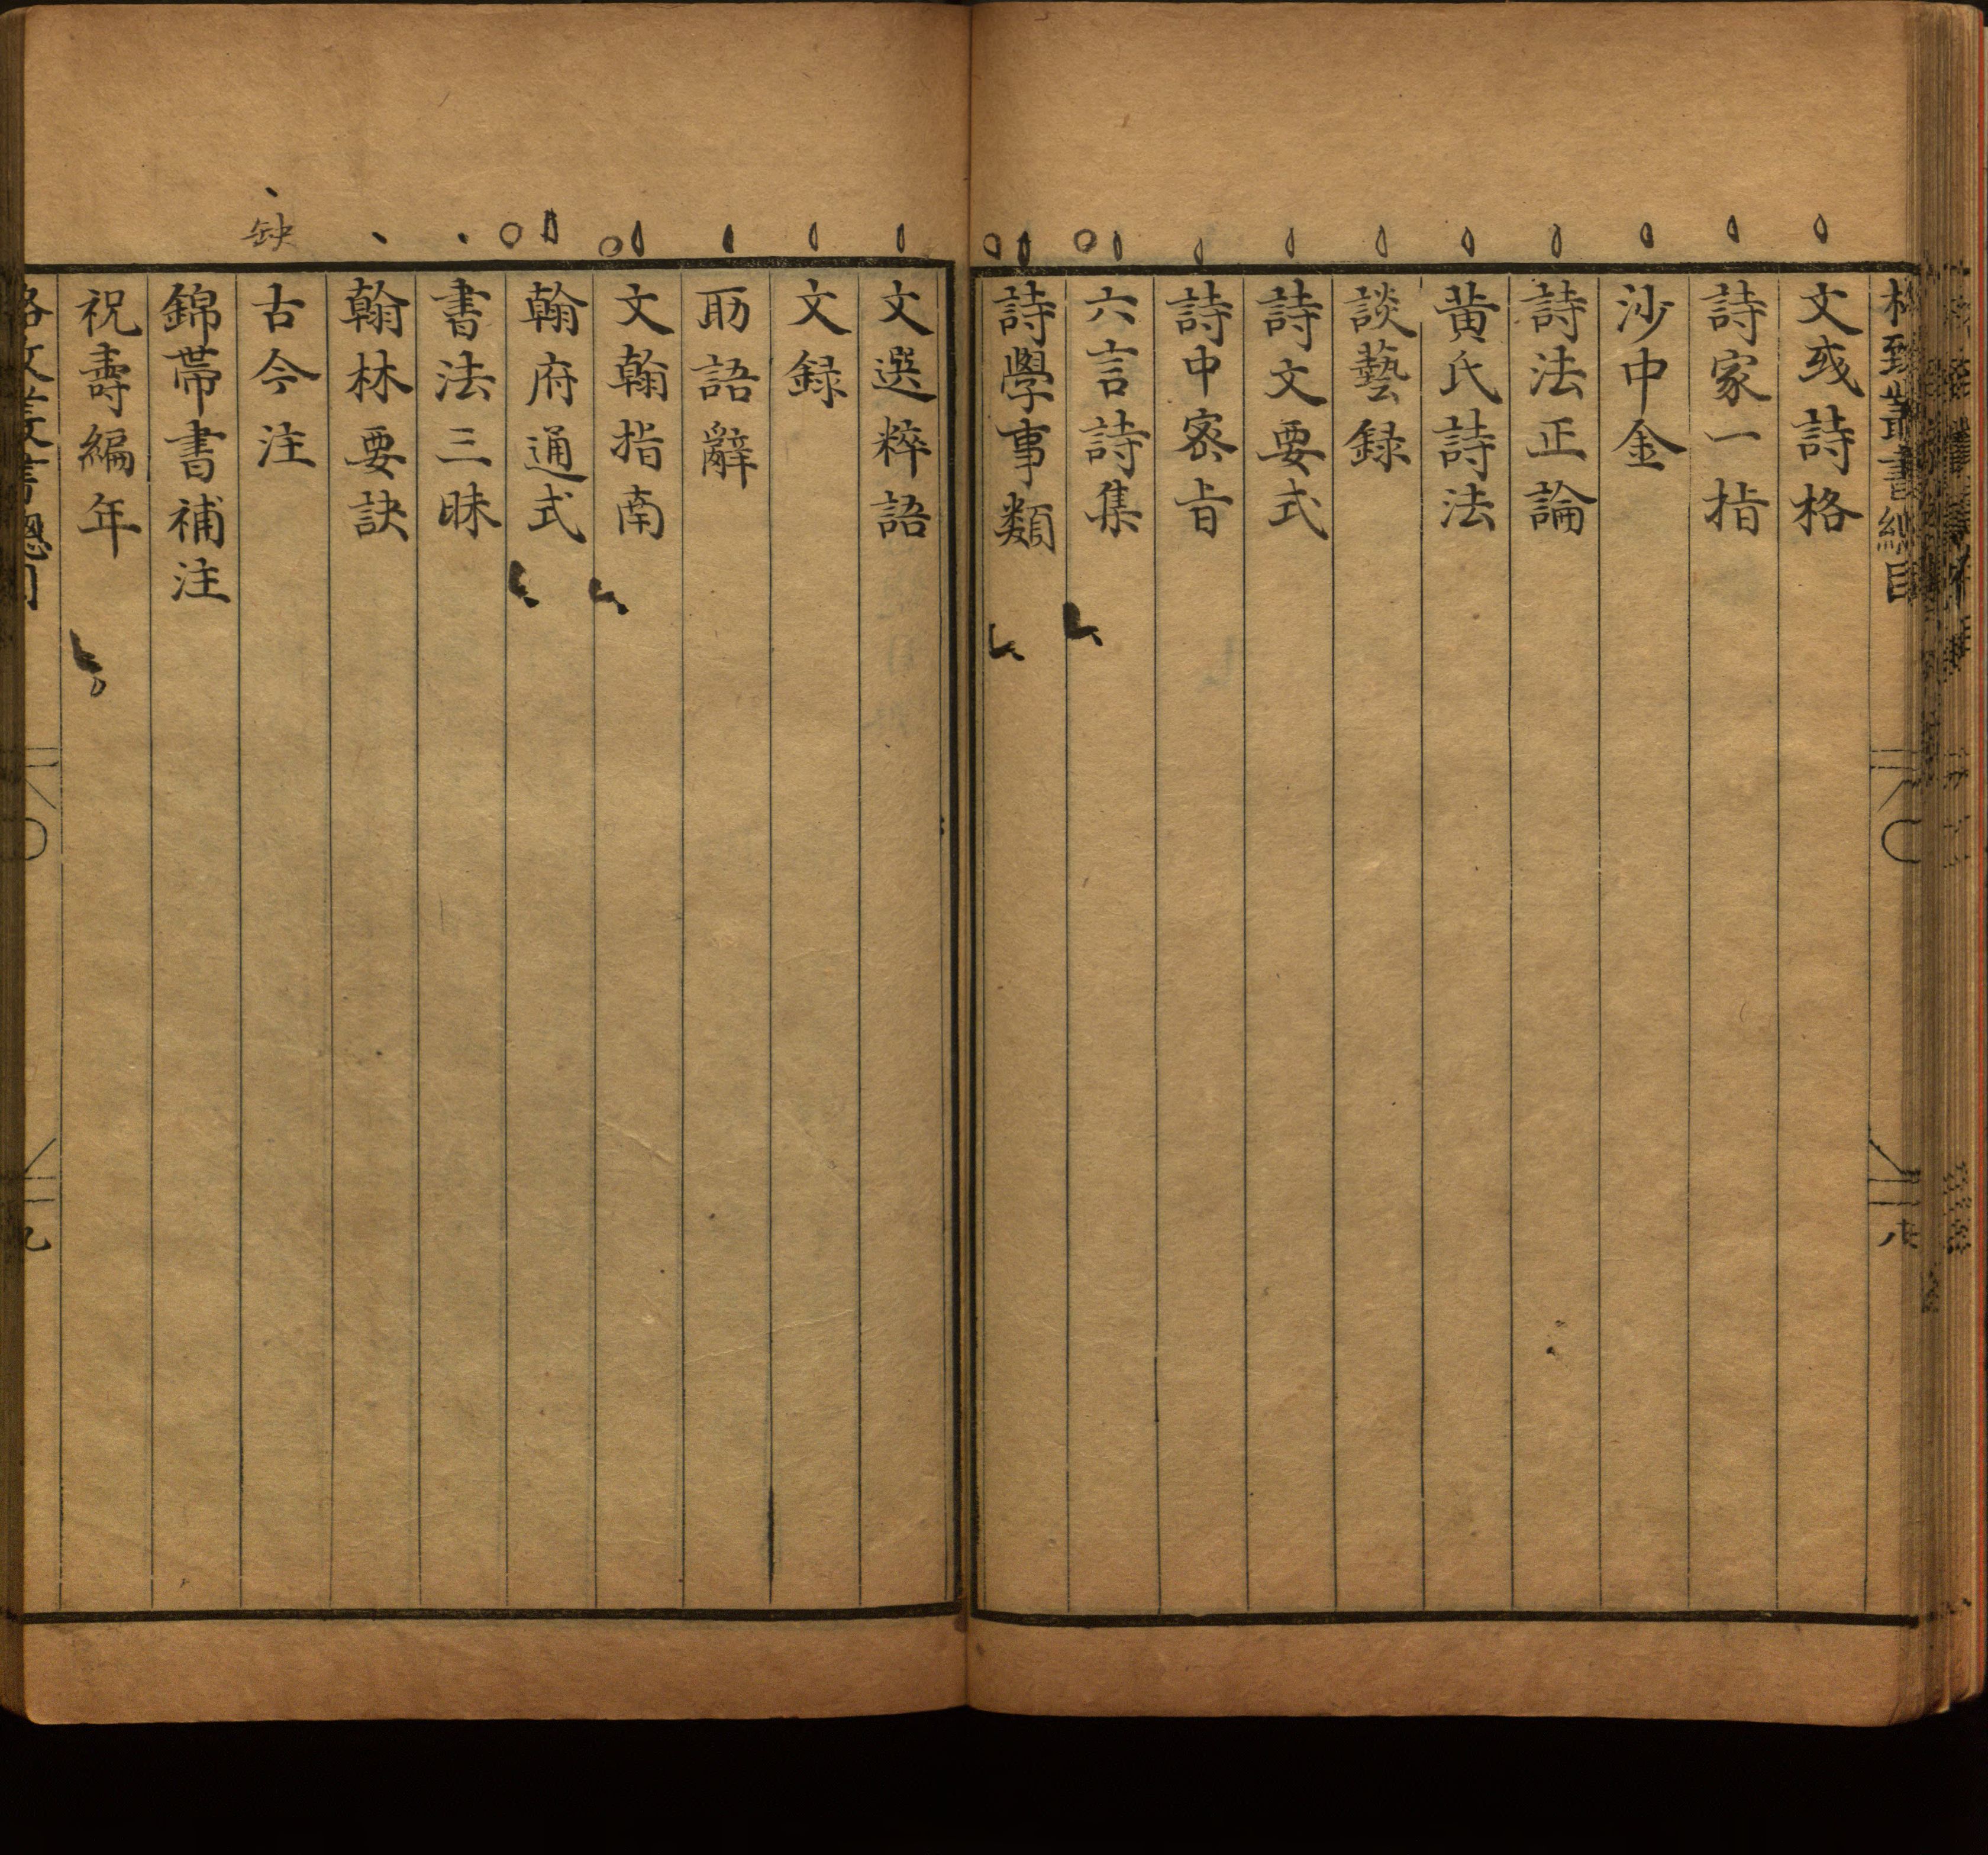 格致叢書總目
文彧詩格
詩家一指
沙中金
詩法正論
黄氏詩法
談藝録
詩文要式
詩中宻旨
六言詩集
詩學事類
八
文選粹語
文録
助語辭
文翰指南
翰府通式
書法三昧
翰林要訣
缺
古今注
錦帶書補注
祝壽編年
格致叢書總目
九